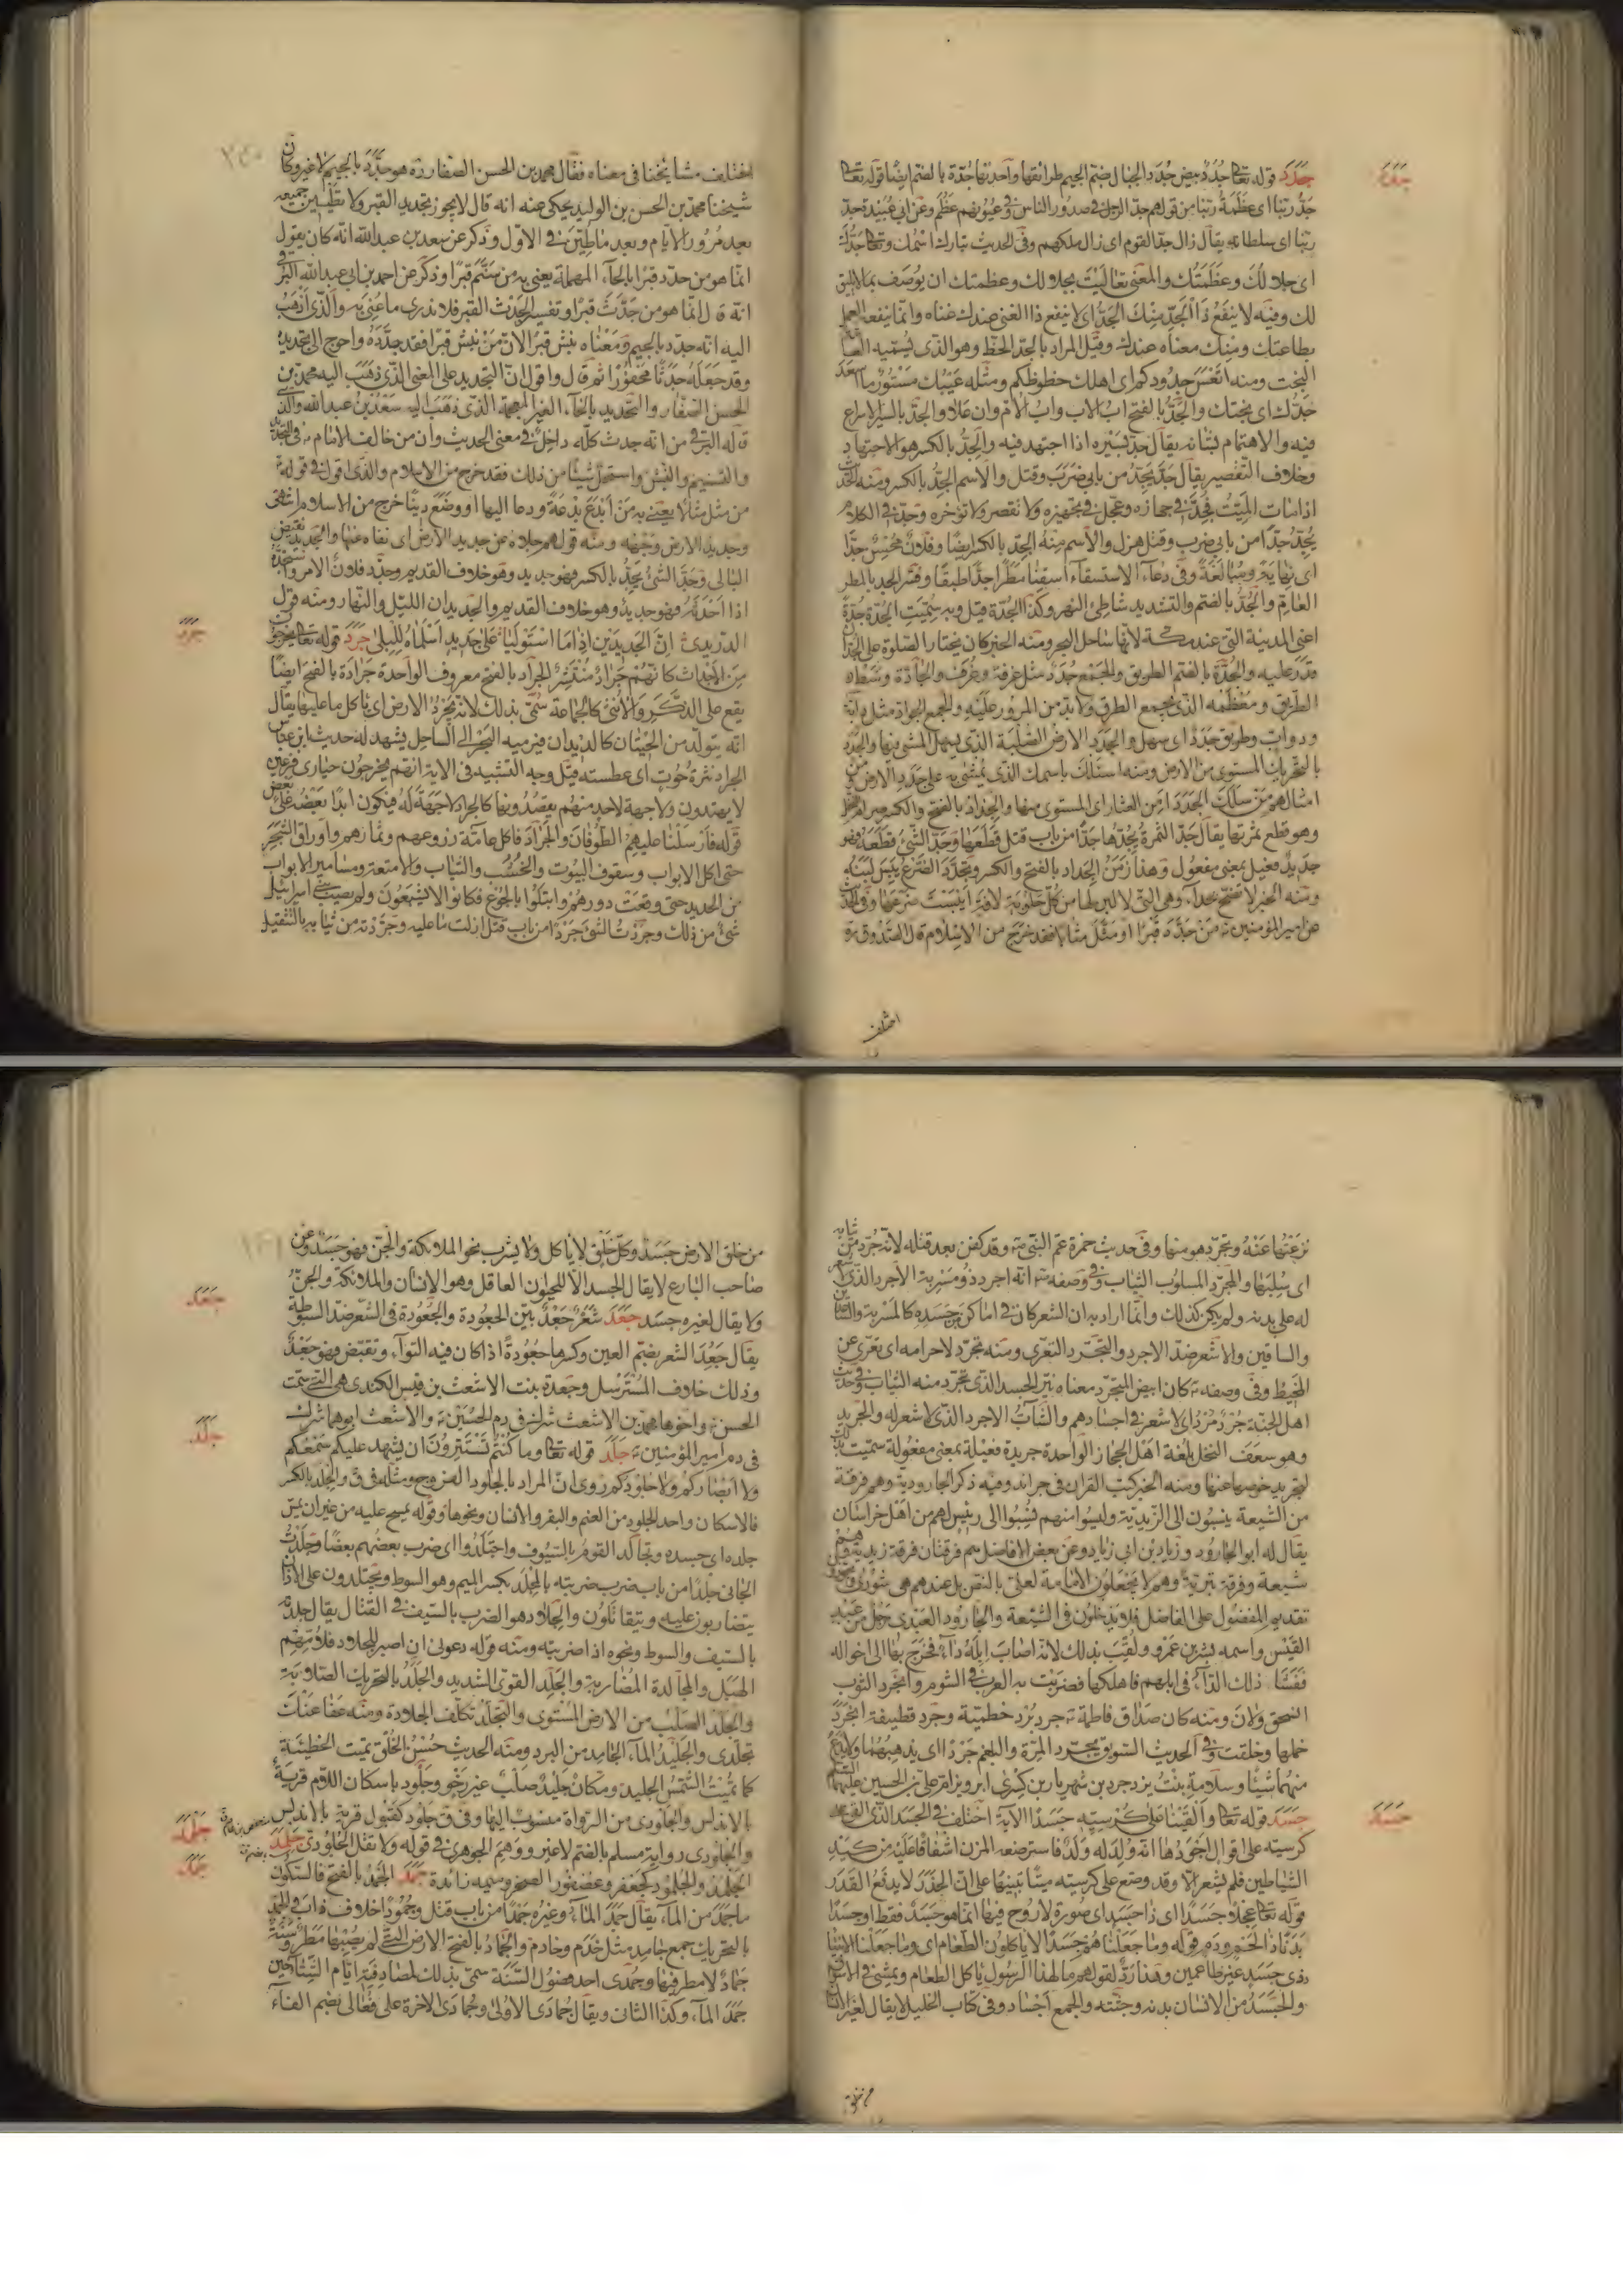 جدد قوله تعالى جدد بيض جدد الجبال بضم الجيم طرائقها واحدتها جدة بالضم ايضا قوله تعالى
جد ربنا اى عظمة ربنا من قولهم جد الرجل فى صدور الناس وفى عيونهم عظم وعن ابى عبيدة جد
ربنا اى سلطانه يقال زال جد القوم اى زال ملكهم وفى الحديث تبارك اسمك وتعالى جدك
اى جلالك وعظمتك والمعنى تعاليت بجلالك وعظمتك ان يوصف بما لا يليق
لك وفيه لا ينفع ذا الجد منك الجد اى لا ينفع ذا الغنى عندك غناه وانما ينفعه العمل
بطاعتك ومنك معناه عندك وقيل المراد بالجد الحظ وهو الذى يسميه
البخت ومنه اتعس جدودكم اى اهلك حظوظكم ومثله عيبك مستور ما اسعدك
جدك اى بختك والجد بالفتح اب الاب واب الام وان علا والجد بالسير الاسراع
فيه والاهتمام بشانه يقال جد بسيره اذا اجتهد فيه والجد بالكسر هو الاجتهاد
وخلاف التقصير يقال جد يجد من بابى ضرب وقتل والاسم الجد بالكسر ومنه الحديث
اذا مات الميت فجد فى جهازه وعجل فى تجهيزه ولا تقصر ولا تؤخره وجد فى الكلام
يجد جدا من بابى ضرب وقتل هزل والاسم منه الجد بالكسر ايضا وفلان محسن جدا
اى نهاية ومبالغة وفى دعاء الاستسقاء اسقنا مطرا جدا طبقا وفسر الجد بالمطر
العام والجد بالضم والتشديد شاطئ النهر وكذا الجدة قيل وبه سميت الجدة جدة
اعنى المدينة التى عند مكة لانها ساحل البحر ومنه الخبر كان يختار الصلوة على الجد ان
قدر عليه والجدة بالضم الطريق والجمع جدد مثل غرفة وغرف والجادة وسط
الطريق ومعظمه الذى يجمع الطرق ولا بد من المرور عليه والجمع الجواد مثل دابة
ودواب وطريق جدد اى سهل والجدد الارض الصلبة الذى يسهل المشى فيها والجدد
بالتحريك المستوى من الارض ومنه اسئلك باسمك الذى يمشى به على جدد الارض ومن
امثالهم من سلك الجدد امن العثار اى المستوى منها والجداد بالفتح والكسر صرام النخل
وهو قطع ثمرتها يقال جد الثمرة يجدها جدا من باب قتل قطعها وجد الشئ قطعه فهو
جديد فعيل بمعنى مفعول وهذا زمن الجداد بالفتح والكسر وتجدد الضرع يبس لبنه
ومنه الخبر لا تضح بجداء وهى التى لا لبن لها من كل حلوبة لافة ايبست ضرعها وفى الحديث
عن امير المؤمنين من جدد قبرا او مثل مثالا فقد خرج من الاسلام قال الصدوق ره
اختلف
جدد
اختلف مشايخنا فى معناه فقال محمد بن الحسن الصفار ره هو جدد بالجيم لا غير وكان
شيخنا محمد بن الحسن بن الوليد يحكى عنه انه قال لا يجوز تجديد القبر ولا تطيين جميعه
بعد مرور الايام وبعد ما طين فى الاول وذكر عن سعد بن عبد الله انه كان يقول
انما هو من حدد قبرا بالحاء المهملة يعنى به من سنم قبرا وذكر عن احمد بن ابى عبد الله البرقى
انه قال انما هو من جدث قبرا وتفسير الجدث القبر فلا ندرى ما عنى به والذى اذهب
اليه انه جدد بالجيم ومعناه نبش قبرا لان من نبش قبرا فقد جدده واحوج الى تجديده
وقد جعله جدثا محفورا ثم قال واقول ان التجديد على المعنى الذى ذهب اليه محمد بن
الحسن الصفار والتحديد بالحاء الغير المعجمة الذى ذهب اليه سعد بن عبد الله والذى
قاله البرقى من انه جدث كله داخل فى معنى الحديث وان من خالف الامام فى التجديد
والتسنيم والنبش واستحل شيئا من ذلك فقد خرج من الاسلام والذى اقول فى قوله
من مثل مثالا يعنى به من ابدع بدعة ودعا اليها او وضع دينا خرج من الاسلام انتهى
وجديد الارض وجهه ومنه قولهم جلاه عن جديد الارض اى نفاه عنها والجديد نقيض
البالى وجد الشئ يجد بالكسر فهو جديد وهو خلاف القديم وجدد فلان الامر واستجده
اذا احدثه فهو جديد وهو خلاف القديم والجديدان الليل والنهار ومنه قول
الدريدى ان الجديدين اذا ما استوليا على جديد اسلماه للبلى جرد قوله تعالى يخرجون
من الاجداث كانهم جراد منتشر الجراد بالفتح معروف الواحدة جرادة بالفتح ايضا
يقع على الذكر والانثى كالحمامة سمى بذلك لانه يجرد الارض اى ياكل ما عليها يقال
انه يتولد من الحيتان كالديدان فيرميه البحر الى الساحل يشهد له حديث ابن عباس
الجراد نثرة حوت اى عطسته قيل وجه التشبيه فى الاية انهم يخرجون حيارى فزعين
لا يهتدون ولا جهة لاحد منهم يقصدونها كالجراد لا جهة له فيكون ابدا بعضه على بعض
قوله فارسلنا عليهم الطوفان والجراد فاكل عامة زروعهم وثمارهم واوراق الشجر
حتى اكل الابواب وسقوف البيوت والخشب والثياب والامتعة ومسامير الابواب
من الحديد حتى وقعت دورهم وابتلوا بالجوع فكانوا لا يشبعون ولم يصب بنى اسرائيل
شئ من ذلك وجردت الشئ جردا من باب قتل ازلت ما عليه وجردته من ثيابه بالتثقيل
جرد
نزعتها عنه وتجرد هو منها وفى حديث حمزة عم النبى وقد كفن بعد قتله لانه جرد من ثيابه
اى سلبها والمجرد المسلوب الثياب وفى وصفه انه اجرد ذو مسربة الاجرد الذى لا شعر
له على بدنه ولم يكن كذلك وانما اراد به ان الشعر كان فى اماكن من جسده كالمسربة والساعدين
والساقين والاشعر ضد الاجرد والتجرد التعرى ومنه تجرد لاحرامه اى تعرى عن
المخيط وفى وصفه كان ابيض المتجرد معناه نير الجسد الذى تجرد منه الثياب وفى حديث
اهل الجنة جرد مرد اى لا شعر فى اجسادهم والشاب الاجرد الذى لا شعر له والجريد
وهو سعف النخل بلغة اهل الحجاز الواحدة جريدة فعيلة بمعنى مفعولة سميت بذلك
لتجريد خوصها عنها ومنه الخبر كتب القران فى جرائد وفيه ذكر الجارودية وهم فرقة
من الشيعة ينسبون الى الزيدية وليسوا منهم نسبوا الى رئيس لهم من اهل خراسان
يقال له ابو الجارود وزياد بن ابى زياد وعن بعض الافاضل هم فرقتان فرقة زيدية وهم
شيعة وفرقة بترية وهم لا يجعلون الامامة لعلى بالنص بل عندهم هى شورى ويجوزون
تقديم المفضول على الفاضل فلا يدخلون فى الشيعة والجارود العبدى رجل من عبد
القيس واسمه بشر بن عمرو ولقب بذلك لانه اصاب ابله داء فخرج بها الى اخواله
ففشا ذلك الداء فى ابلهم فاهلكها فضربت به العرب فى الشوم وانجرد الثوب
انسحق ولان ومنه كان صداق فاطمة جرد برد حطمية وجرد قطيفة انجرد
خملها وخلقت وفى الحديث السويق يجرد المرة والبلغم جردا اى يذهبهما ولا يدع
منهما شيئا وسلامة بنت يزدجرد بن شهريار بن كسرى ابرويز ام على بن الحسين عليهما السلام
جسد قوله تعالى والقينا على كرسيه جسدا الاية اختلف فى الجسد الذى القى على
كرسيه على اقوال اجودها انه ولد له ولد فاسترضعه المزن اشفاقا عليه من كيد
الشياطين فلم يشعر الا وقد وضع على كرسيه ميتا تنبيها على ان الحذر لا يدفع القدر
قوله تعالى عجلا جسدا اى ذا جسد اى صورة لا روح فيها انما هو جسد فقط او جسدا
بدنا ذا لحم ودم قوله وما جعلناهم جسدا لا ياكلون الطعام اى وما جعلنا الانبياء
ذوى جسد غير طاعمين وهذا رد لقولهم مال هذا الرسول ياكل الطعام ويمشى فى الاسواق
والجسد من الانسان بدنه وجثته والجمع اجساد وفى كتاب الخليل لا يقال لغير الانسان
جسد
من خلق الارض جسد وكل خلق لا ياكل ولا يشرب نحو الملائكة والجن فهو جسد وعن
صاحب البارع لا يقال الجسد الا للحيوان العاقل وهو الانسان والملائكة والجن
ولا يقال لغيره جسد جعد شعر جعد بين الجعودة والجعودة فى الشعر ضد السبوطة
يقال جعد الشعر بضم العين وكسرها جعودة اذا كان فيه التواء وتقبض فهو جعد
وذلك خلاف المسترسل وجعدة بنت الاشعث بن قيس الكندى هى التى سمت
الحسن واخوها محمد بن الاشعث شرك فى دم الحسين والاشعث ابوهما شرك
فى دم امير المؤمنين جلد قوله تعالى وما كنتم تستترون ان يشهد عليكم سمعكم
ولا ابصاركم ولا جلودكم روى ان المراد بالجلود الفروج ومثله فى ق والجلد بالكسر
فالاسكان واحد الجلود من الغنم والبقر والانسان ونحوها وقوله يمسح عليه من غير ان يمس
جلده اى جسده وتجالد القوم بالسيوف واجتلدوا اى ضرب بعضهم بعضا وجلدت
الجانى جلدا من باب ضرب ضربته بالمجلد بكسر الميم وهو السوط ويجتلدون على الاذان
يتضاربون عليه ويتقاتلون والجلاد هو الضرب بالسيف فى القتال يقال جلدته
بالسيف والسوط ونحوه اذا ضربته ومنه قوله دعونى ان اصبر للجلاد فلامهم
الهبل والمجالدة المضاربة والجلد القوى الشديد والجلد بالتحريك الصلابة
والجلد الصلب من الارض المستوى والتجلد تكلف الجلادة ومنه عفا عنك
تجلدى والجليد الماء الجامد من البرد ومنه الحديث حسن الخلق تميت الخطيئة
كما تميت الشمس الجليد ومكان جليد صلب غير رخو وجلود باسكان اللام قرية
بالاندلس والجلودى من الرواة منسوب اليها وفى ق جلود كقبول قرية بالاندلس
والجلودى رواية مسلم بالضم لا غير ووهم الجوهرى فى قوله ولا تقل الجلودى جلمد
الجلمد والجلمود كجعفر وعصفور الصخر وميمه زائدة جمد الجمد بالفتح فالسكون
ما جمد من الماء يقال جمد الماء وغيره جمدا من باب قتل وجمودا خلاف ذاب والجمد
بالتحريك جمع جامد مثل خدم وخادم والجماد بالفتح الارض التى لم يصبها مطر وسنة
جماد لا مطر فيها وجمدى احد فصول السنة سمى بذلك لمصادفته ايام الشتاء حين
جمد الماء وكذا الثانى ويقال جمادى الاولى وجمادى الاخرة على فعالى بضم الفاء
جعد
جلد
جلمد
جمد